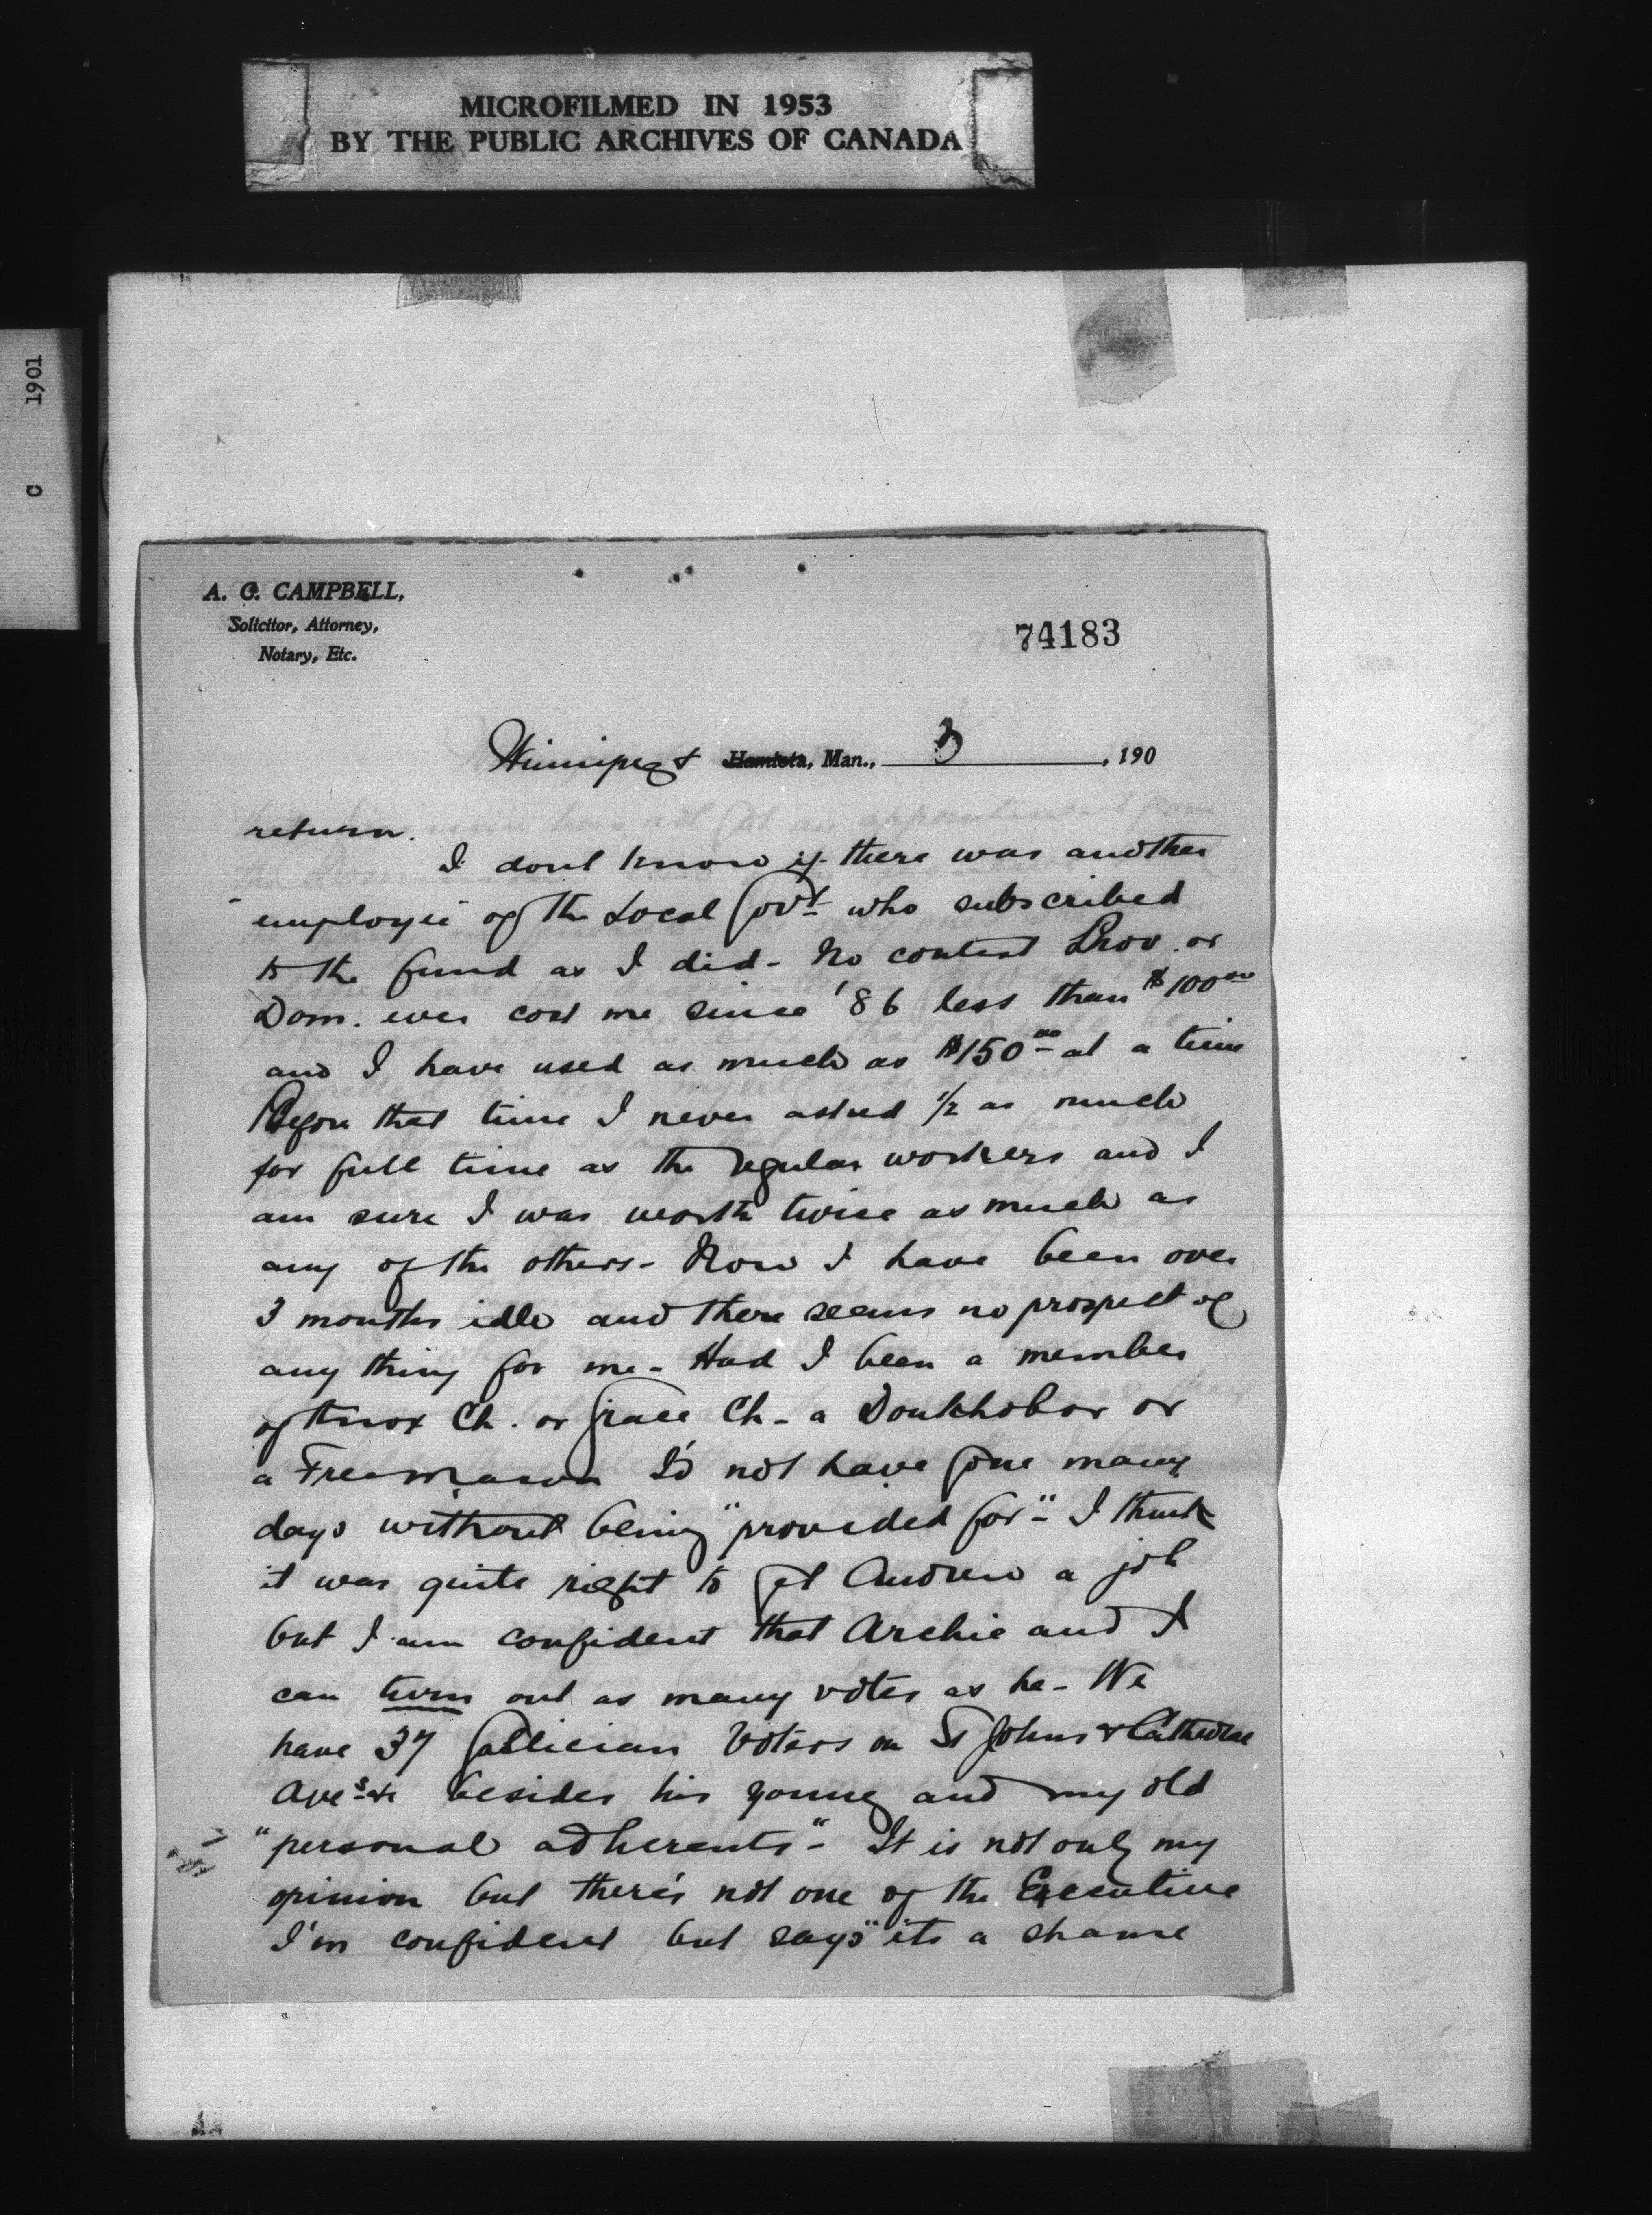 MICROFILMED IN 1953
BY THE PUBLIC ARCHIVES OF CANADA
C 1901
A. G. CAMPBELL,
Solicitor, Attorney,
Notary, Etc.
74183
Winnipeg Hamiota, Man., 3 , 190
return.
I dont know if there was another
employee of the Local Govt who subscribed
to the fund as I did - No contest Prov. or
Dom. ever cost me since '86 less than $100 00
and I have used as much as $150 00 at a time
Before that time I never asked 1/2 as much
for full time as the regular workers and I
am sure I was worth twice as much as
any of the others - Now I have been over
3 months idle and there seems no prospect of
any thing for me - Had I been a member
of Knox Ch. or Grace Ch - a Doukhobor or
a Freemason I'd not have gone many
days without being "provided for" - I think
it was quite right to get Andrew a job
but I am confident that Archie and I
can turn out as many votes as he - We
have 37 Galician Voters on St Johns & Cathedral
Aves besides his young and my old
"personal adherents" - It is not only my
opinion but there's not one of the Executive
I'm confident but says "its a shame